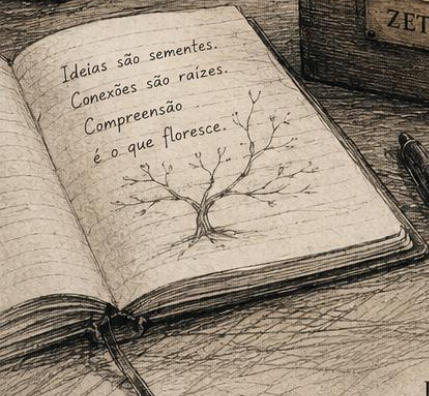 Ideias são sementes.
Conexões são raízes.
Compreensão
é o que floresce.
ZET